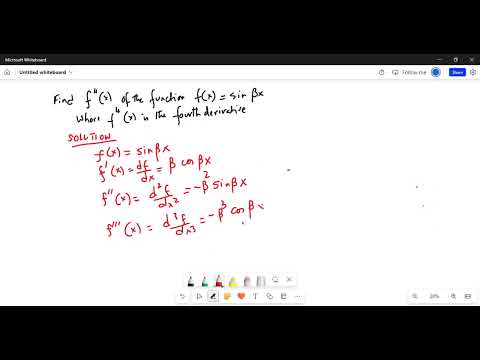 Microsoft Whiteboard
Untitled whiteboard
Follow me
Find f⁴(x) of the function f(x) = sin βx
Where f⁴(x) is the fourth derivative
SOLUTION
f(x) = sin βx
f'(x) = df/dx = β cos βx
f''(x) = d²f/dx² = -β² sin βx
f'''(x) = d³f/dx³ = -β³ cos βx